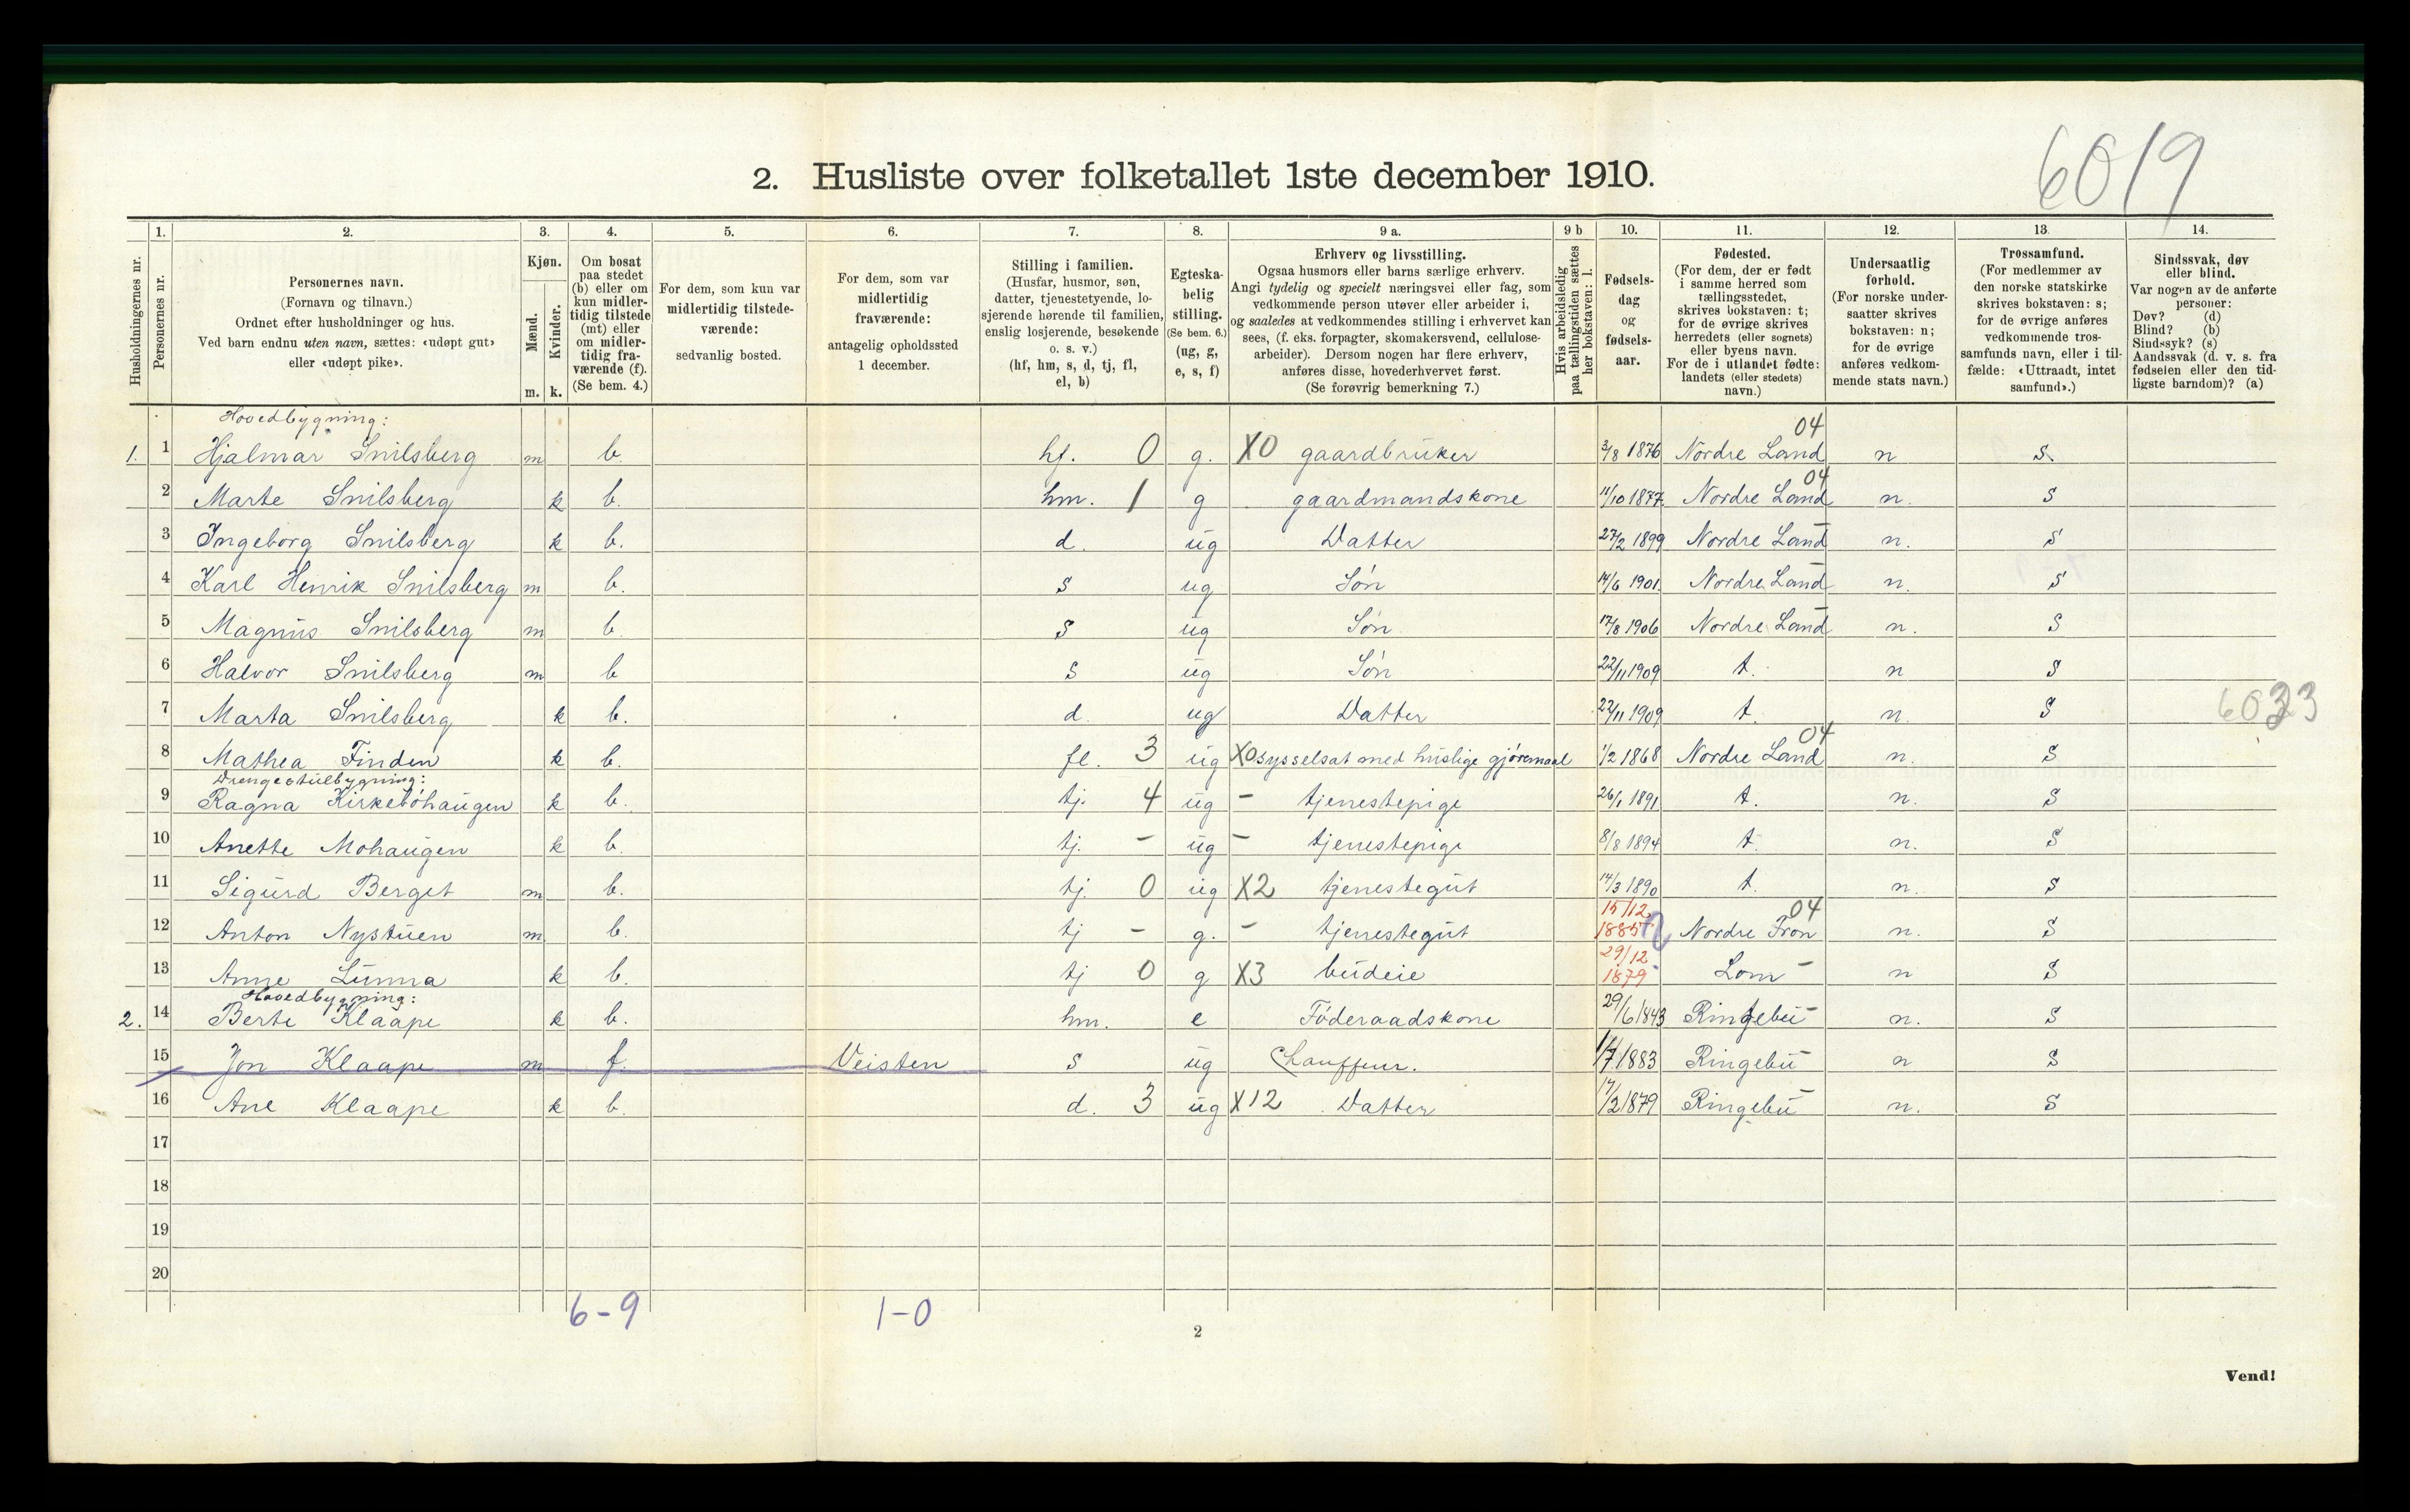 6019
2. Husliste over folketallet 1ste december 1910.
Husholdningernes nr.
1. Personernes nr.
2. Personernes navn. (Fornavn og tilnavn.) Ordnet efter husholdninger og hus. Ved barn endnu uten navn, sættes: «udøpt gut» eller «udøpt pike».
3. Kjøn. Mænd. m. Kvinder. k.
4. Om bosat paa stedet (b) eller om kun midlertidig tilstede (mt) eller om midlertidig fraværende (f). (Se bem. 4.)
5. For dem, som kun var midlertidig tilstedeværende: sedvanlig bosted.
6. For dem, som var midlertidig fraværende: antagelig opholdssted 1 december.
7. Stilling i familien. (Husfar, husmor, søn, datter, tjenestetyende, losjerende hørende til familien, enslig losjerende, besøkende o. s. v.) (hf, hm, s, d, tj, fl, el, b)
8. Egteskabelig stilling. (Se bem. 6.) (ug, g, e, s, f)
9 a. Erhverv og livsstilling. Ogsaa husmors eller barns særlige erhverv. Angi tydelig og specielt næringsvei eller fag, som vedkommende person utøver eller arbeider i, og saaledes at vedkommendes stilling i erhvervet kan sees, (f. eks. forpagter, skomakersvend, cellulosearbeider). Dersom nogen har flere erhverv, anføres disse, hovederhvervet først. (Se forøvrig bemerkning 7.)
9 b Hvis arbeidsledig paa tællingstiden sættes her bokstaven: l.
10. Fødselsdag og fødselsaar.
11. Fødested. (For dem, der er født i samme herred som tællingsstedet, skrives bokstaven: t; for de øvrige skrives herredets (eller sognets) eller byens navn. For de i utlandet fødte: landets (eller stedets) navn.)
12. Undersaatlig forhold. (For norske undersaatter skrives bokstaven: n; for de øvrige anføres vedkommende stats navn.)
13. Trossamfund. (For medlemmer av den norske statskirke skrives bokstaven: s; for de øvrige anføres vedkommende trossamfunds navn, eller i tilfælde: «Uttraadt, intet samfund».)
14. Sindssvak, døv eller blind. Var nogen av de anførte personer: Døv? (d) Blind? (b) Sindssyk? (s) Aandssvak (d. v. s. fra fødselen eller den tidligste barndom)? (a)
Hovedbygning: 04
1. 1 Hjalmar Snilsberg m b. hf. 0 g. X0 gaardbruker 3/8 1876 Nordre Land n s.
04
2 Marte Snilsberg k b. hm. 1 g gaardmandskone 11/10 1877 Nordre Land n. s
3 Ingeborg Snilsberg k b. d. ug Datter 27/2 1899 Nordre Land n. s
4 Karl Henrik Snilsberg m b. s ug Søn 14/6 1901. Nordre Land n. s
5 Magnus Snilsberg m b. s ug Søn 17/8 1906 Nordre Land n. s
6 Halvor Snilsberg m b s ug Søn 22/11 1909 t. n s
7 Marta Snilsberg k b. d. ug Datter 22/11 1909 t. n. s
04
8 Mathea Finden k b. fl. 3 ug X0 sysselsat med huslige gjøremaal 1/2 1868 Nordre Land n. s
Drengestulbygning:
9 Ragna Kirkebøhaugen k b. tj. 4 ug - tjenestepige 26/1 1891 t. n. s
10 Anette Mohaugen k b. tj. - ug - tjenestepige 8/8 1894 t. n. s
11 Sigurd Berget m b. tj. 0 ug X2 tjenestegut 14/3 1890 t. n. s
04
12 Anton Nystuen m b. tj - g. - tjenestegut 15/12 1885 Nordre Fron n. s
13 Anne Lunna k b. tj 0 g X3 budeie 29/12 1879 Lom - n s
Hovedbygning:
2. 14 Berte Klaape k b. hm. e Føderaadskone 29/6 1843 Ringebu - n. s
15 Jon Klaape m f. Veisten s ug Chauffeur. 1/7 1883 Ringebu - n s
16 Ane Klaape k b. d. 3 ug X12 Datter 17/2 1879 Ringebu - n. s
17
18
19
20
6-9 1-0
2
Vend!